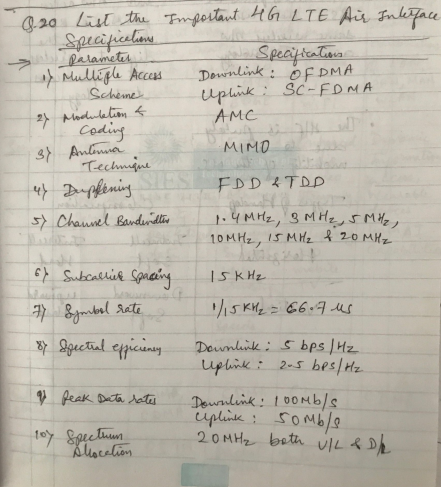 Q.20 List the Important 4G LTE Air Interface
Specifications
Parameter Specifications
1) Multiple Access Downlink : OFDMA
Scheme Uplink : SC-FDMA
2) Modulation & AMC
Coding
3) Antenna MIMO
Technique
4) Duplexing FDD & TDD
5) Channel Bandwidth 1.4 MHz, 3 MHz, 5 MHz,
10 MHz, 15 MHz & 20 MHz
6) Subcarrier Spacing 15 KHz
7) Symbol rate 1/15 KHz = 66.7 us
8) Spectral efficiency Downlink : 5 bps/Hz
Uplink : 2.5 bps/Hz
9) Peak Data rates Downlink : 100 Mb/s
Uplink : 50 Mb/s
10) Spectrum 20 MHz both U/L & D/L
Allocation